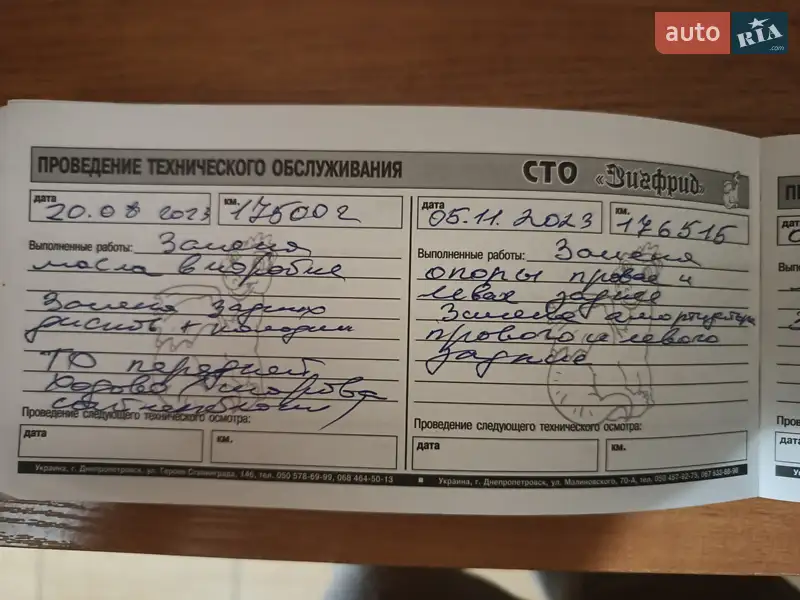 auto RIA .com
ПРОВЕДЕНИЕ ТЕХНИЧЕСКОГО ОБСЛУЖИВАНИЯ
СТО «Зигфрид»
дата 20.08 2023
км. 175002
Выполненные работы: Замена
масла в коробке
Замена задних
дисков + колодки
ТО передней
Проведение следующего технического осмотра:
дата
км.
Украина, г. Днепропетровск, ул. Героев Сталинграда, 146, тел. 050 578-69-99, 068 464-50-13
дата 05.11.2023
км. 176515
Выполненные работы: Замена
опоры правая и
левая заднее
Замена амортизатора
правого и левого
задние
Проведение следующего технического осмотра:
дата
км.
Украина, г. Днепропетровск, ул. Малиновского, 70-А, тел.